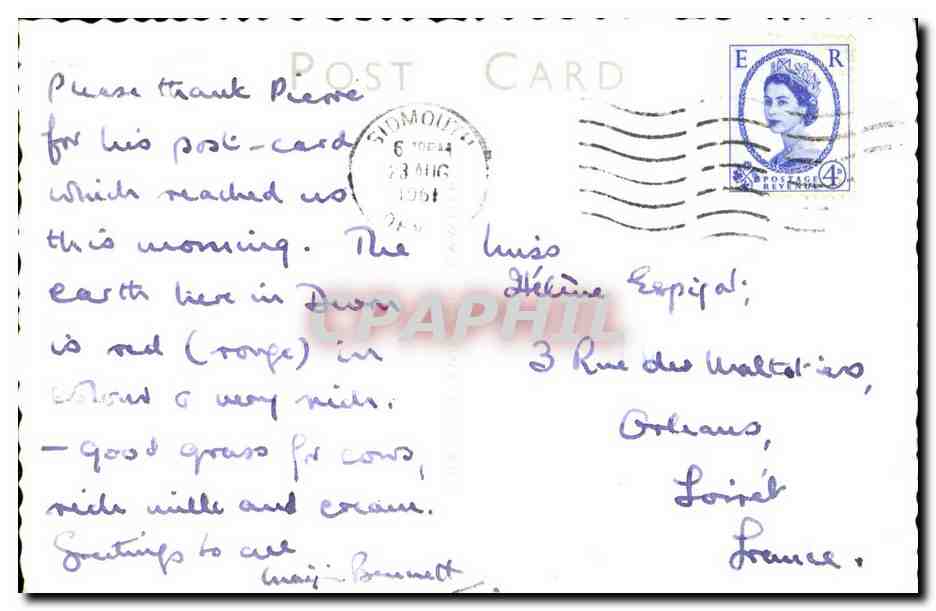 POST CARD
Please thank Pierre
for his post-card
which reached us
this morning. The
earth here in Devon
is red (rouge) in
colour & very rich.
- Good grass for cows,
rich milk and cream.
Greetings to all
Bennett
SIDMOUTH
6
23 AUG
1961
E R
POSTAGE
REVENUE
4D
Miss
Hélène
3 Rue des
Orleans,
Loiret
France.
CPAPHIL